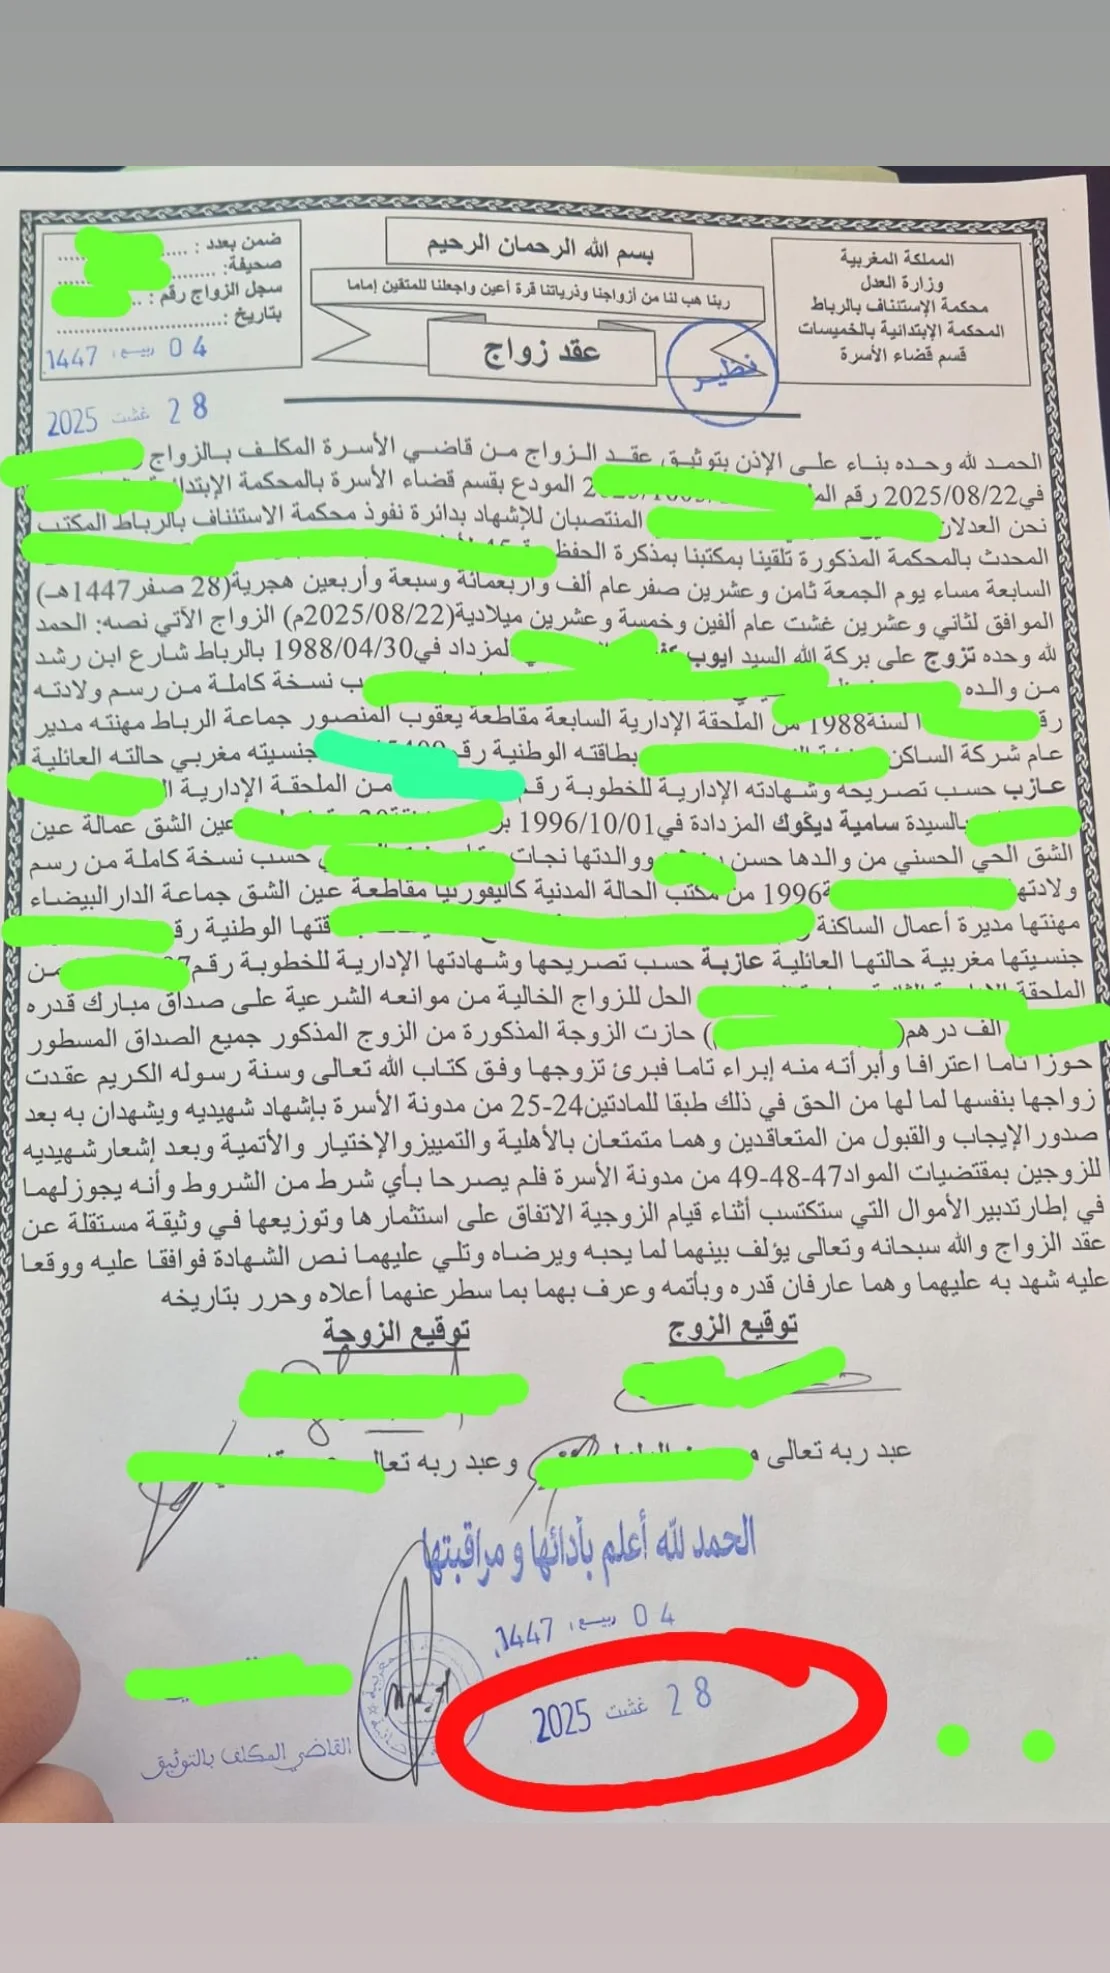 المملكة المغربية
وزارة العدل
محكمة الإستئناف بالرباط
المحكمة الإبتدائية بالخميسات
قسم قضاء الأسرة
بسم الله الرحمان الرحيم
ربنا هب لنا من أزواجنا وذرياتنا قرة أعين واجعلنا للمتقين إماما
عقد زواج
نظير
ضمن بعدد :
صحيفة:
سجل الزواج رقم :
بتاريخ :
04 ربيع 1447
28 غشت 2025
الحمد لله وحده بناء على الإذن بتوثيق عقد الزواج من قاضي الأسرة المكلف بالزواج
في2025/08/22 رقم المودع بقسم قضاء الأسرة بالمحكمة
نحن العدلان المنتصبان للإشهاد بدائرة نفوذ محكمة الاستئناف بالرباط المكتب
المحدث بالمحكمة المذكورة تلقينا بمكتبنا بمذكرة الحفظ
السابعة مساء يوم الجمعة ثامن وعشرين صفر عام ألف وأربعمائة وسبعة وأربعين هجرية(28 صفر1447هـ)
الموافق لثاني وعشرين غشت عام ألفين وخمسة وعشرين ميلادية(2025/08/22م) الزواج الآتي نصه: الحمد
لله وحده تزوج على بركة الله السيد ايوب المزداد في1988/04/30 بالرباط شارع ابن رشد
من والده نسخة كاملة من رسم ولادته
لسنة1988 من الملحقة الإدارية السابعة مقاطعة يعقوب المنصور جماعة الرباط مهنته مدير
عام شركة الساكن بطاقته الوطنية جنسيته مغربي حالته العائلية
عازب حسب تصريحه وشهادته الإدارية للخطوبة رقم من الملحقة الإدارية
بالسيدة سامية ديكوك المزدادة في1996/10/01 عين الشق عمالة عين
الشق الحي الحسني من والدها حسن ووالدتها نجات حسب نسخة كاملة من رسم
ولادتها 1996 من مكتب الحالة المدنية كاليفورنيا مقاطعة عين الشق جماعة الدار البيضاء
مهنتها مديرة أعمال الساكنة الوطنية
جنسيتها مغربية حالتها العائلية عازبة حسب تصريحها وشهادتها الإدارية للخطوبة رقم من
الملحقة الحل للزواج الخالية من موانعه الشرعية على صداق مبارك قدره
الف درهم( ) حازت الزوجة المذكورة من الزوج المذكور جميع الصداق المسطور
حوزا تاما اعترافا وأبرأته منه إبراء تاما فبرئ تزوجها وفق كتاب الله تعالى وسنة رسوله الكريم عقدت
زواجها بنفسها لما لها من الحق في ذلك طبقا للمادتين24-25 من مدونة الأسرة بإشهاد شهيديه ويشهدان به بعد
صدور الإيجاب والقبول من المتعاقدين وهما متمتعان بالأهلية والتمييز والإختيار والأتمية وبعد إشعار شهيديه
للزوجين بمقتضيات المواد47-48-49 من مدونة الأسرة فلم يصرحا بأي شرط من الشروط وأنه يجوز لهما
في إطار تدبير الأموال التي ستكتسب أثناء قيام الزوجية الاتفاق على استثمارها وتوزيعها في وثيقة مستقلة عن
عقد الزواج والله سبحانه وتعالى يؤلف بينهما لما يحبه ويرضاه وتلي عليهما نص الشهادة فوافقا عليه ووقعا
عليه شهد به عليهما وهما عارفان قدره وبأتمه وعرف بهما بما سطر عنهما أعلاه وحرر بتاريخه
توقيع الزوج توقيع الزوجة
عبد ربه تعالى وعبد ربه
الحمد لله أعلم بأدائها و مراقبتها
04 ربيع 1447
28 غشت 2025
القاضي المكلف بالتوثيق